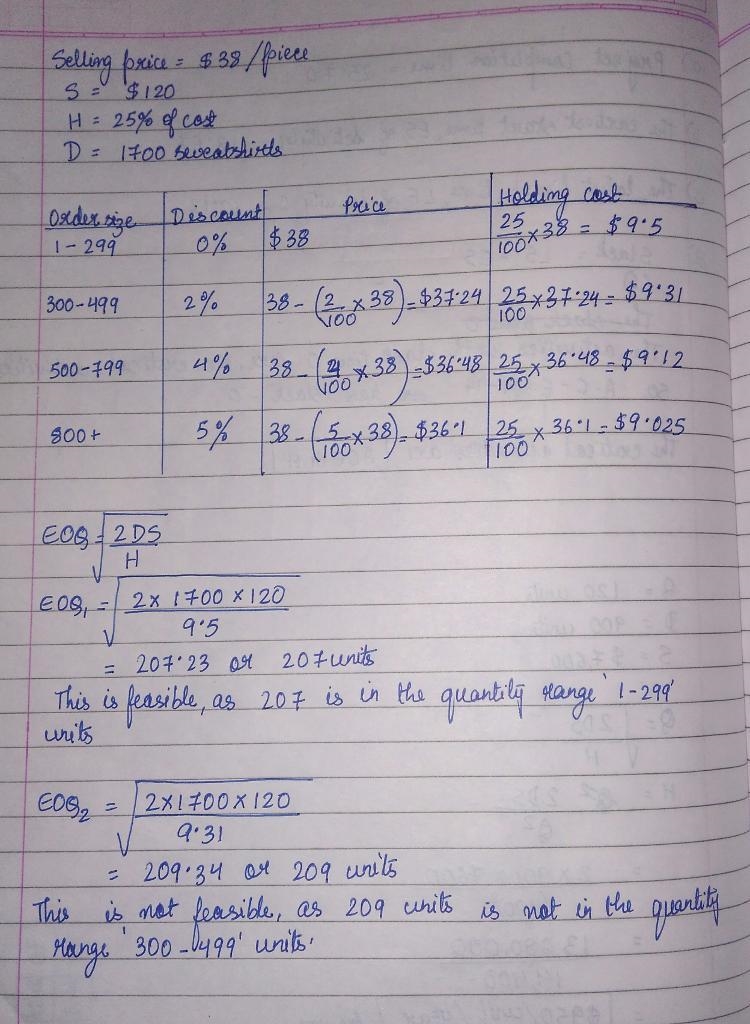 Selling price = $38/piece
S = $120
H = 25% of cost
D = 1700 sweatshirts
Order size Discount Price Holding cost
1-299 0% $38 25/100 × 38 = $9.5
300-499 2% 38 - (2/100 × 38) = $37.24 25/100 × 37.24 = $9.31
500-799 4% 38 - (4/100 × 38) = $36.48 25/100 × 36.48 = $9.12
800+ 5% 38 - (5/100 × 38) = $36.1 25/100 × 36.1 = $9.025
EOQ = √(2DS/H)
EOQ₁ = √(2 × 1700 × 120/9.5)
= 207.23 or 207 units
This is feasible, as 207 is in the quantity range '1-299'
units
EOQ₂ = √(2×1700×120/9.31)
= 209.34 or 209 units
This is not feasible, as 209 units is not in the quantity
range '300-499' units.